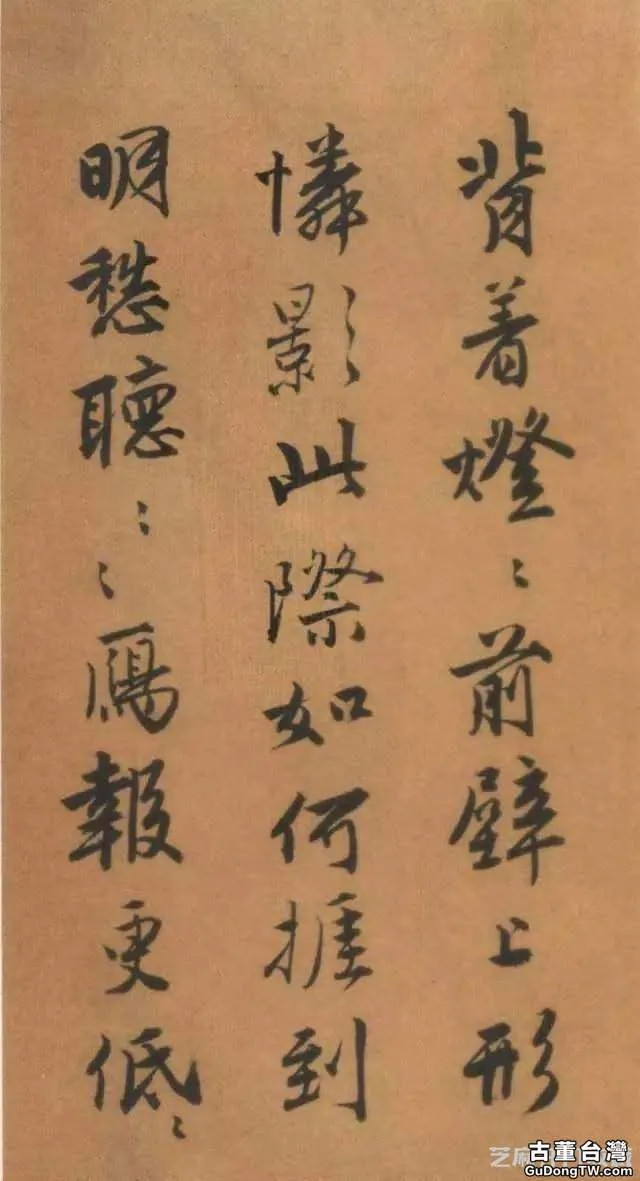 背着燈〻前壁上形
憐影此際如何捱到
明愁聽〻〻鴈報更低〻
古董台灣
GuDongTW.com